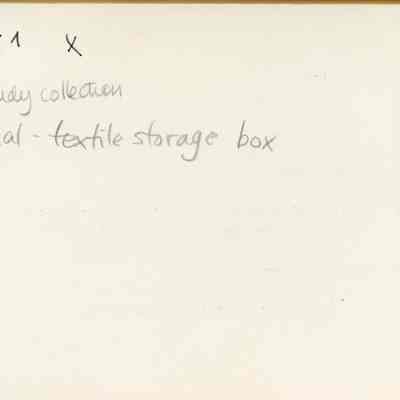 1 X
udy collection
al - textile storage box